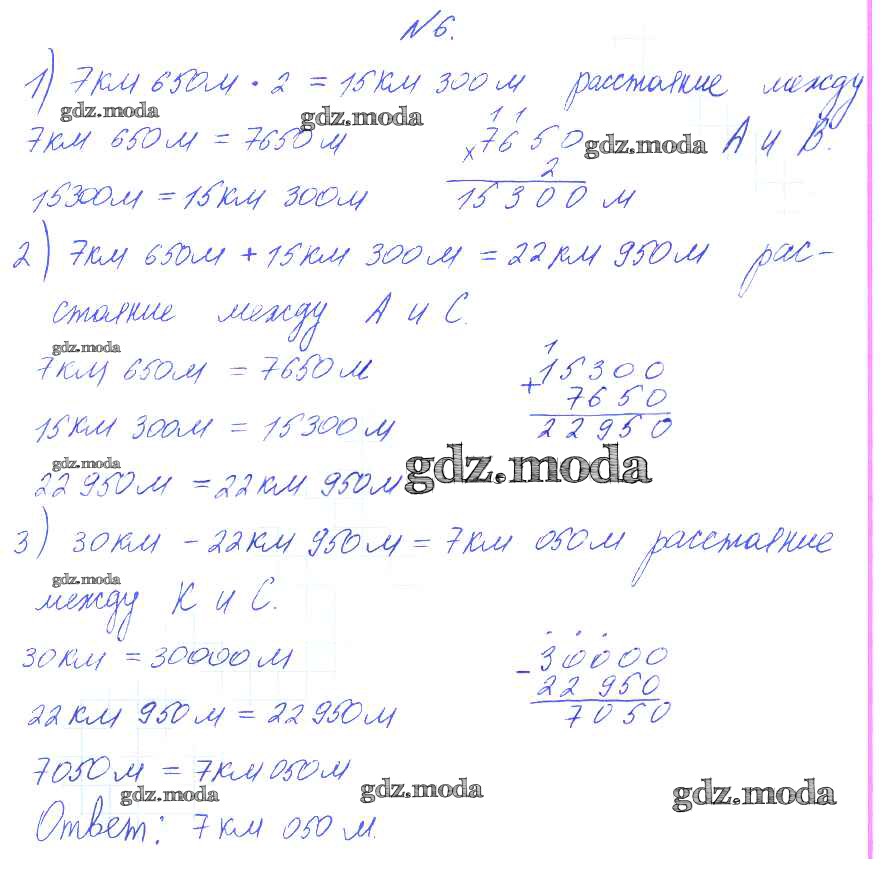 №6.
1) 7км 650м · 2 = 15км 300м расстояние между
gdz.moda gdz.moda
7км 650м = 7650м
1 1
× 7650 gdz.moda А и В.
2
15300м = 15км 300м
15300 м
2) 7км 650м + 15км 300м = 22км 950м рас-
стояние между А и С.
gdz.moda
7км 650м = 7650м
1
+ 15300
7650
15км 300м = 15300м
22950
gdz.moda gdz.moda
22 950м = 22км 950м
3) 30км - 22км 950м = 7км 050м расстояние
gdz.moda
между К и С.
30км = 30000м
- 30000
22 950
22км 950м = 22950м
7050
7050м = 7км 050м
gdz.moda gdz.moda gdz.moda
Ответ: 7км 050м.